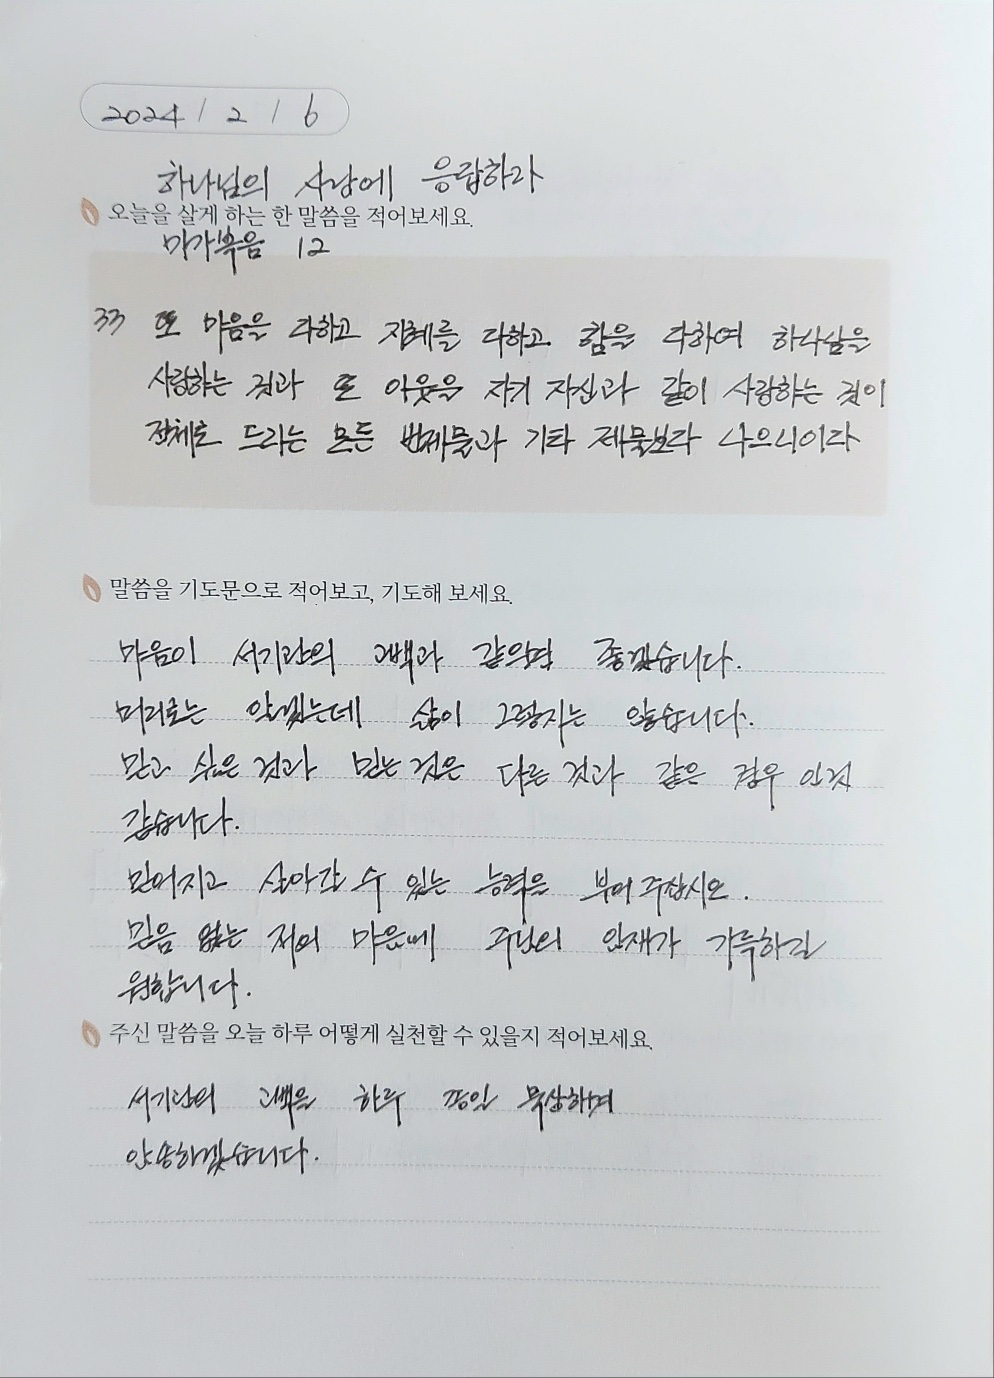 2024 / 2 / 6
하나님의 사랑에 응답하라
오늘을 살게 하는 한 말씀을 적어보세요.
마가복음 12
33 또 마음을 다하고 지혜를 다하고 힘을 다하여 하나님을
사랑하는 것과 또 이웃을 자기 자신과 같이 사랑하는 것이
전체로 드리는 모든 번제물과 기타 제물보다 나으니이다
말씀을 기도문으로 적어보고, 기도해 보세요.
마음이 서기관의 고백과 같으면 좋겠습니다.
머리로는 알겠는데 삶이 그렇지는 않습니다.
믿고 싶은 것과 믿는 것은 다른 것과 같은 경우 인것
같습니다.
믿어지고 살아갈 수 있는 능력을 부어 주십시오.
믿음 없는 저의 마음에 주님의 임재가 가득하길
원합니다.
주신 말씀을 오늘 하루 어떻게 실천할 수 있을지 적어보세요.
서기관의 고백을 한루 종일 묵상하며
암송하겠습니다.